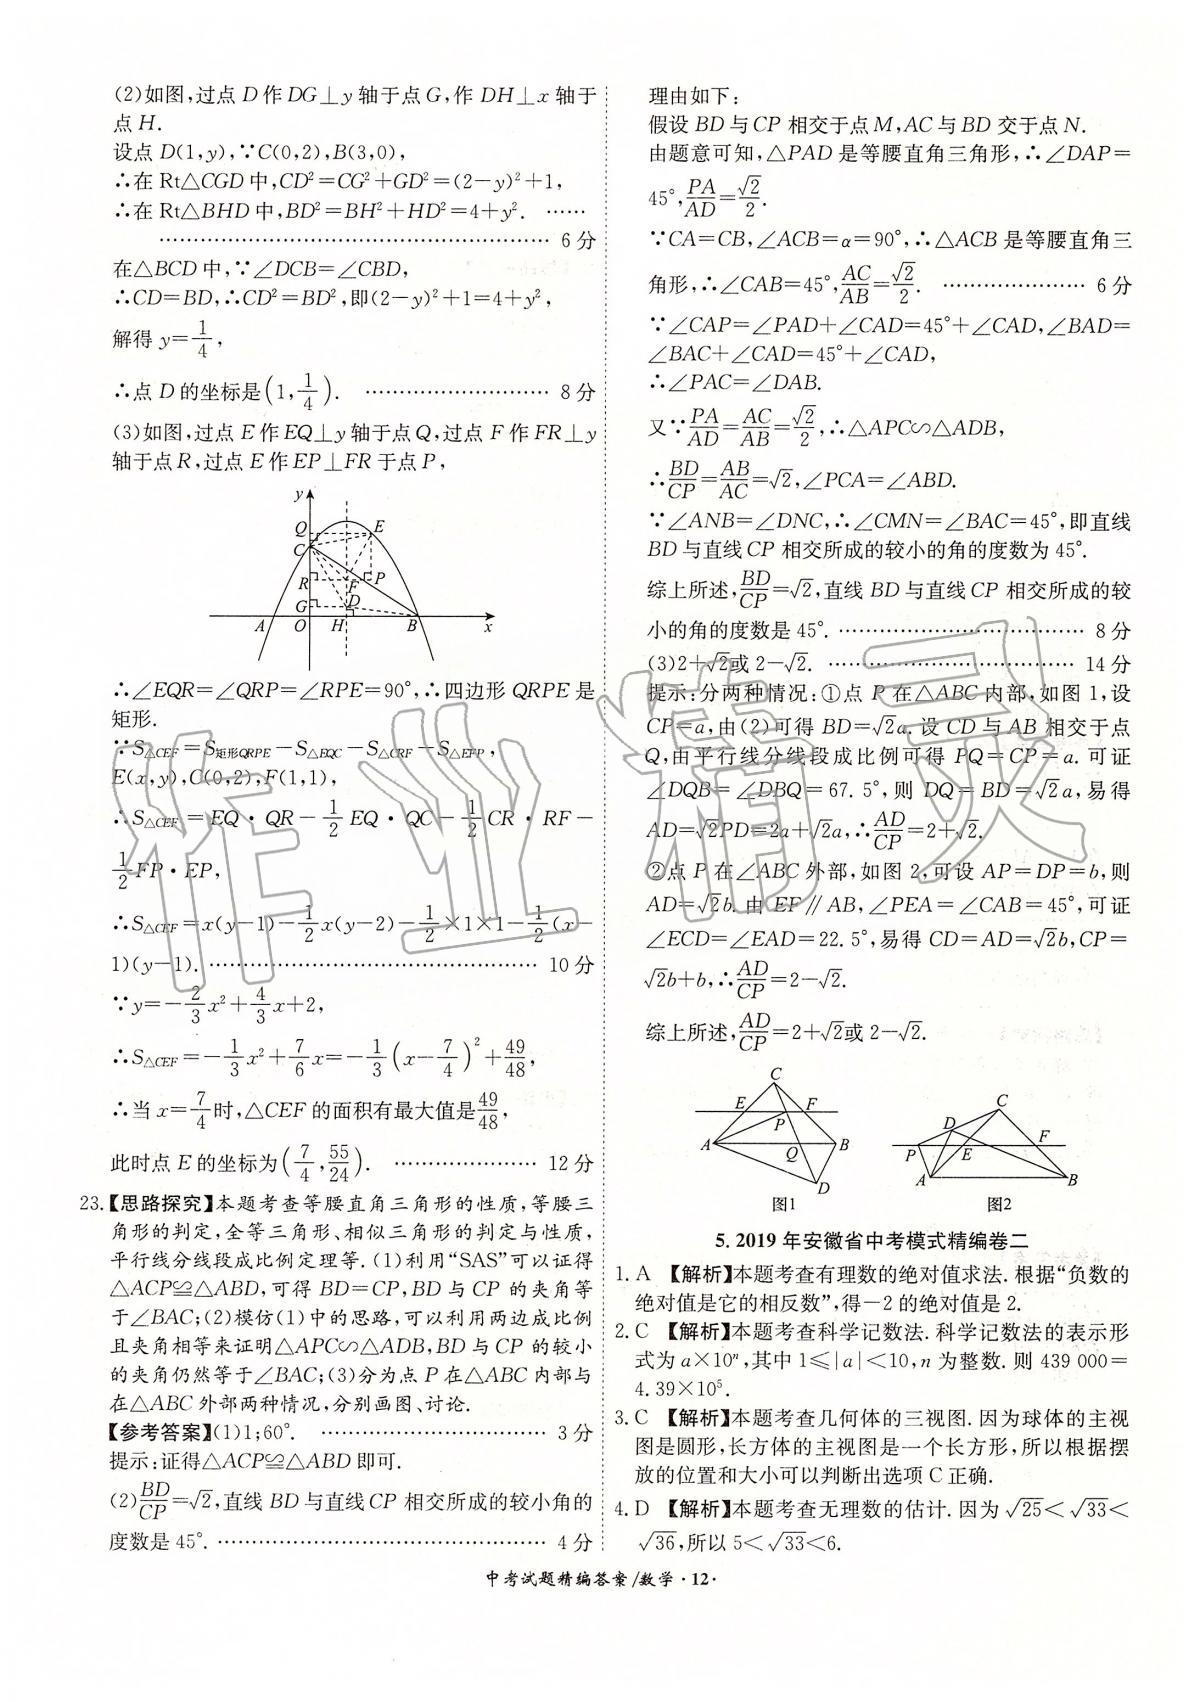 (2)如图,过点 D 作 DG⊥y 轴于点 G,作 DH⊥x 轴于
点 H.
设点 D(1,y),∵C(0,2),B(3,0),
∴在 Rt△CGD 中,CD²=CG²+GD²=(2-y)²+1,
∴在 Rt△BHD 中,BD²=BH²+HD²=4+y². ……
…………………………………………… 6 分
在△BCD 中,∵∠DCB=∠CBD,
∴CD=BD,∴CD²=BD²,即(2-y)²+1=4+y²,
解得 y=1/4,
∴点 D 的坐标是(1,1/4). …………………… 8 分
(3)如图,过点 E 作 EQ⊥y 轴于点 Q,过点 F 作 FR⊥y
轴于点 R,过点 E 作 EP⊥FR 于点 P,
y
Q E
C
R F P
G D
A O H B x
∴∠EQR=∠QRP=∠RPE=90°,∴四边形 QRPE 是
矩形.
∵S△CEF=S矩形QRPE-S△EQC-S△CRF-S△EFP,
E(x,y),C(0,2),F(1,1),
∴S△CEF=EQ·QR-1/2 EQ·QC-1/2 CR·RF-
1/2 FP·EP,
∴S△CEF=x(y-1)-1/2 x(y-2)-1/2×1×1-1/2(x-
1)(y-1). …………………………………… 10 分
∵y=-2/3 x²+4/3 x+2,
∴S△CEF=-1/3 x²+7/6 x=-1/3(x-7/4)²+49/48,
∴当 x=7/4 时,△CEF 的面积有最大值是49/48,
此时点 E 的坐标为(7/4,55/24). ……………… 12 分
23.【思路探究】本题考查等腰直角三角形的性质,等腰三
角形的判定,全等三角形、相似三角形的判定与性质,
平行线分线段成比例定理等.(1)利用“SAS”可以证明
△ACP≌△ABD,可得 BD=CP,BD 与 CP 的夹角等
于∠BAC;(2)模仿(1)中的思路,可以利用两边成比例
且夹角相等来证明△APC∽△ADB,BD 与 CP 的较小
的夹角仍然等于∠BAC;(3)分为点 P 在△ABC 内部与
在△ABC 外部两种情况,分别画图、讨论.
【参考答案】(1)1;60°. ………………………… 3 分
提示:证得△ACP≌△ABD 即可.
(2)BD/CP=√2,直线 BD 与直线 CP 相交所成的较小角的
度数是 45°. …………………………………… 4 分
理由如下:
假设 BD 与 CP 相交于点 M,AC 与 BD 交于点 N.
由题意可知,△PAD 是等腰直角三角形,∴∠DAP=
45°,PA/AD=√2/2.
∵CA=CB,∠ACB=α=90°,∴△ACB 是等腰直角三
角形,∴∠CAB=45°,AC/AB=√2/2. ………………… 6 分
∵∠CAP=∠PAD+∠CAD=45°+∠CAD,∠BAD=
∠BAC+∠CAD=45°+∠CAD,
∴∠PAC=∠DAB.
又∵PA/AD=AC/AB=√2/2,∴△APC∽△ADB,
∴BD/CP=AB/AC=√2,∠PCA=∠ABD.
∵∠ANB=∠DNC,∴∠CMN=∠BAC=45°,即直线
BD 与直线 CP 相交所成的较小的角的度数为 45°.
综上所述,BD/CP=√2,直线 BD 与直线 CP 相交所成的较
小的角的度数是 45°. …………………………… 8 分
(3)2+√2或 2-√2. …………………………… 14 分
提示:分两种情况:①点 P 在△ABC 内部,如图 1,设
CP=a,由(2)可得 BD=√2a. 设 CD 与 AB 相交于点
Q,由平行线分线段成比例可得 PQ=CP=a. 可证
∠DQB=∠DBQ=67.5°,则 DQ=BD=√2a,易得
AD=√2PD=2a+√2a,∴AD/CP=2+√2.
②点 P 在∠ABC 外部,如图 2,可设 AP=DP=b,则
AD=√2b. 由 EF∥AB,∠PEA=∠CAB=45°,可证
∠ECD=∠EAD=22.5°,易得 CD=AD=√2b,CP=
√2b+b,∴AD/CP=2-√2.
综上所述,AD/CP=2+√2或 2-√2.
C
E F
P
A Q B
D
图1
C
D F
P E
A B
图2
5. 2019 年安徽省中考模式精编卷二
1. A 【解析】本题考查有理数的绝对值求法. 根据“负数的
绝对值是它的相反数”,得-2 的绝对值是 2.
2. C 【解析】本题考查科学记数法. 科学记数法的表示形
式为 a×10ⁿ,其中 1≤|a|<10,n 为整数. 则 439 000=
4.39×10⁵.
3. C 【解析】本题考查几何体的三视图. 因为球体的主视
图是圆形,长方体的主视图是一个长方形,所以根据摆
放的位置和大小可以判断出选项 C 正确.
4. D 【解析】本题考查无理数的估计. 因为 √25<√33<
√36,所以 5<√33<6.
中考试题精编答案/数学·12·
作业精灵